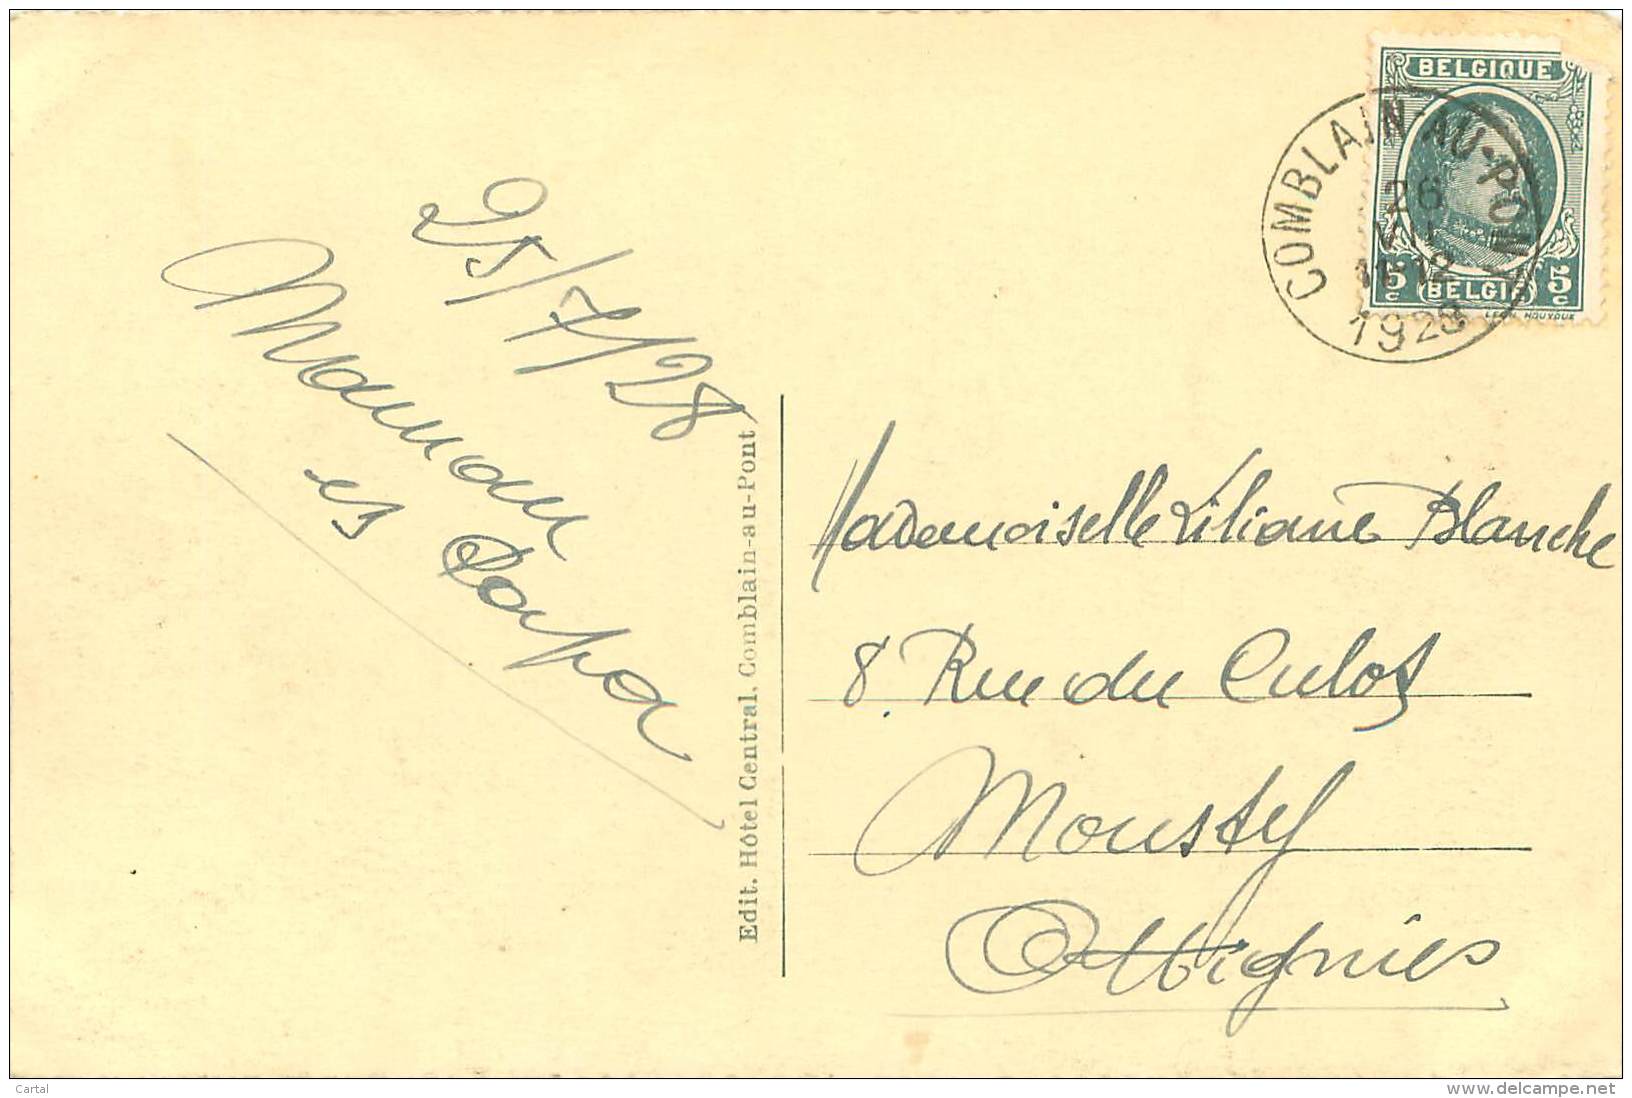 25/7/28
Maman
et Papa
Edit. Hôtel Central, Comblain-au-Pont
BELGIQUE
5c BELGIE 5c
HOUYOUX
COMBLAIN-AU-PONT
26
VII
1928
Mademoiselle Liliane Blanche
8. Rue du Culot
Mousty
Ottignies
Cartal
www.delcampe.net